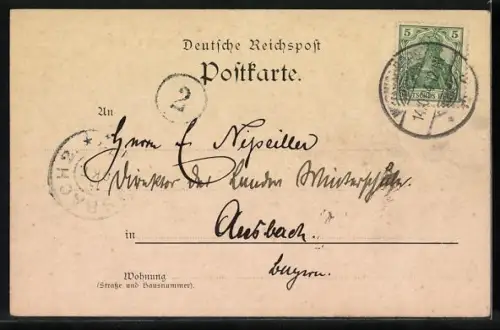 Deutsche Reichspost
Postkarte.
5 5
2
An
Herrn E Nipeiller
Direktor der Landw Winterschule.
in Ansbach.
Bayern.
Wohnung
(Straße und Hausnummer)
SBACH 2.
14.